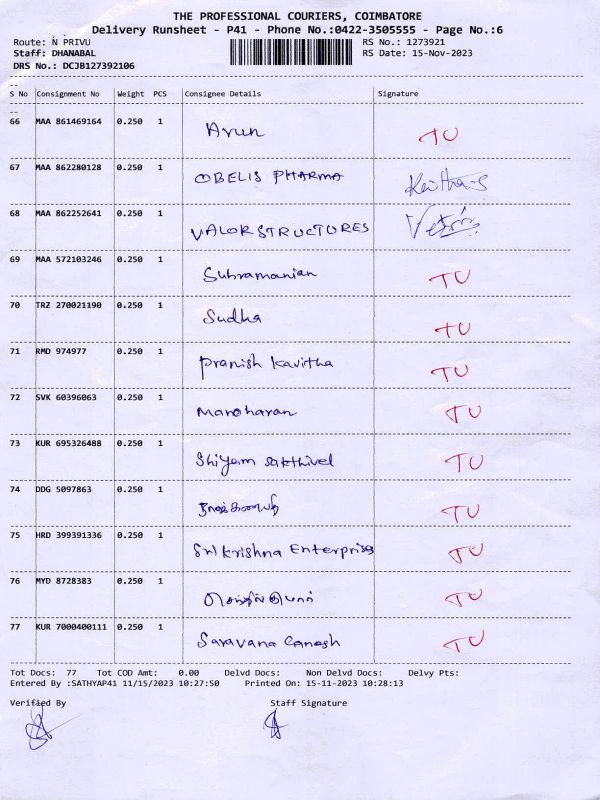 THE PROFESSIONAL COURIERS, COIMBATORE
Delivery Runsheet - P41 - Phone No.:0422-3505555 - Page No.:6
Route: N PRIVU RS No.: 1273921
Staff: DHANABAL RS Date: 15-Nov-2023
DRS No.: DCJB127392106
--
S No Consignment No Weight PCS Consignee Details Signature
--
66 MAA 861469164 0.250 1 Arun TU
67 MAA 862280128 0.250 1 OBELIS PHARMA
68 MAA 862252641 0.250 1 VALOR STRUCTURES
69 MAA 572103246 0.250 1 Subramanian TU
70 TRZ 270021190 0.250 1 Sudha TU
71 RMD 974977 0.250 1 Pranish Kavitha TU
72 SVK 60396063 0.250 1 Manoharan TU
73 KUR 695326488 0.250 1 Shiyam Sakthivel TU
74 DDG 5097863 0.250 1 TU
75 HRD 399391336 0.250 1 Sri Krishna Enterprises TU
76 MYD 8728383 0.250 1 TU
77 KUR 7000400111 0.250 1 Saravana Ganesh TU
Tot Docs: 77 Tot COD Amt: 0.00 Delvd Docs: Non Delvd Docs: Delvy Pts:
Entered By :SATHYAP41 11/15/2023 10:27:50 Printed On: 15-11-2023 10:28:13
Verified By Staff Signature